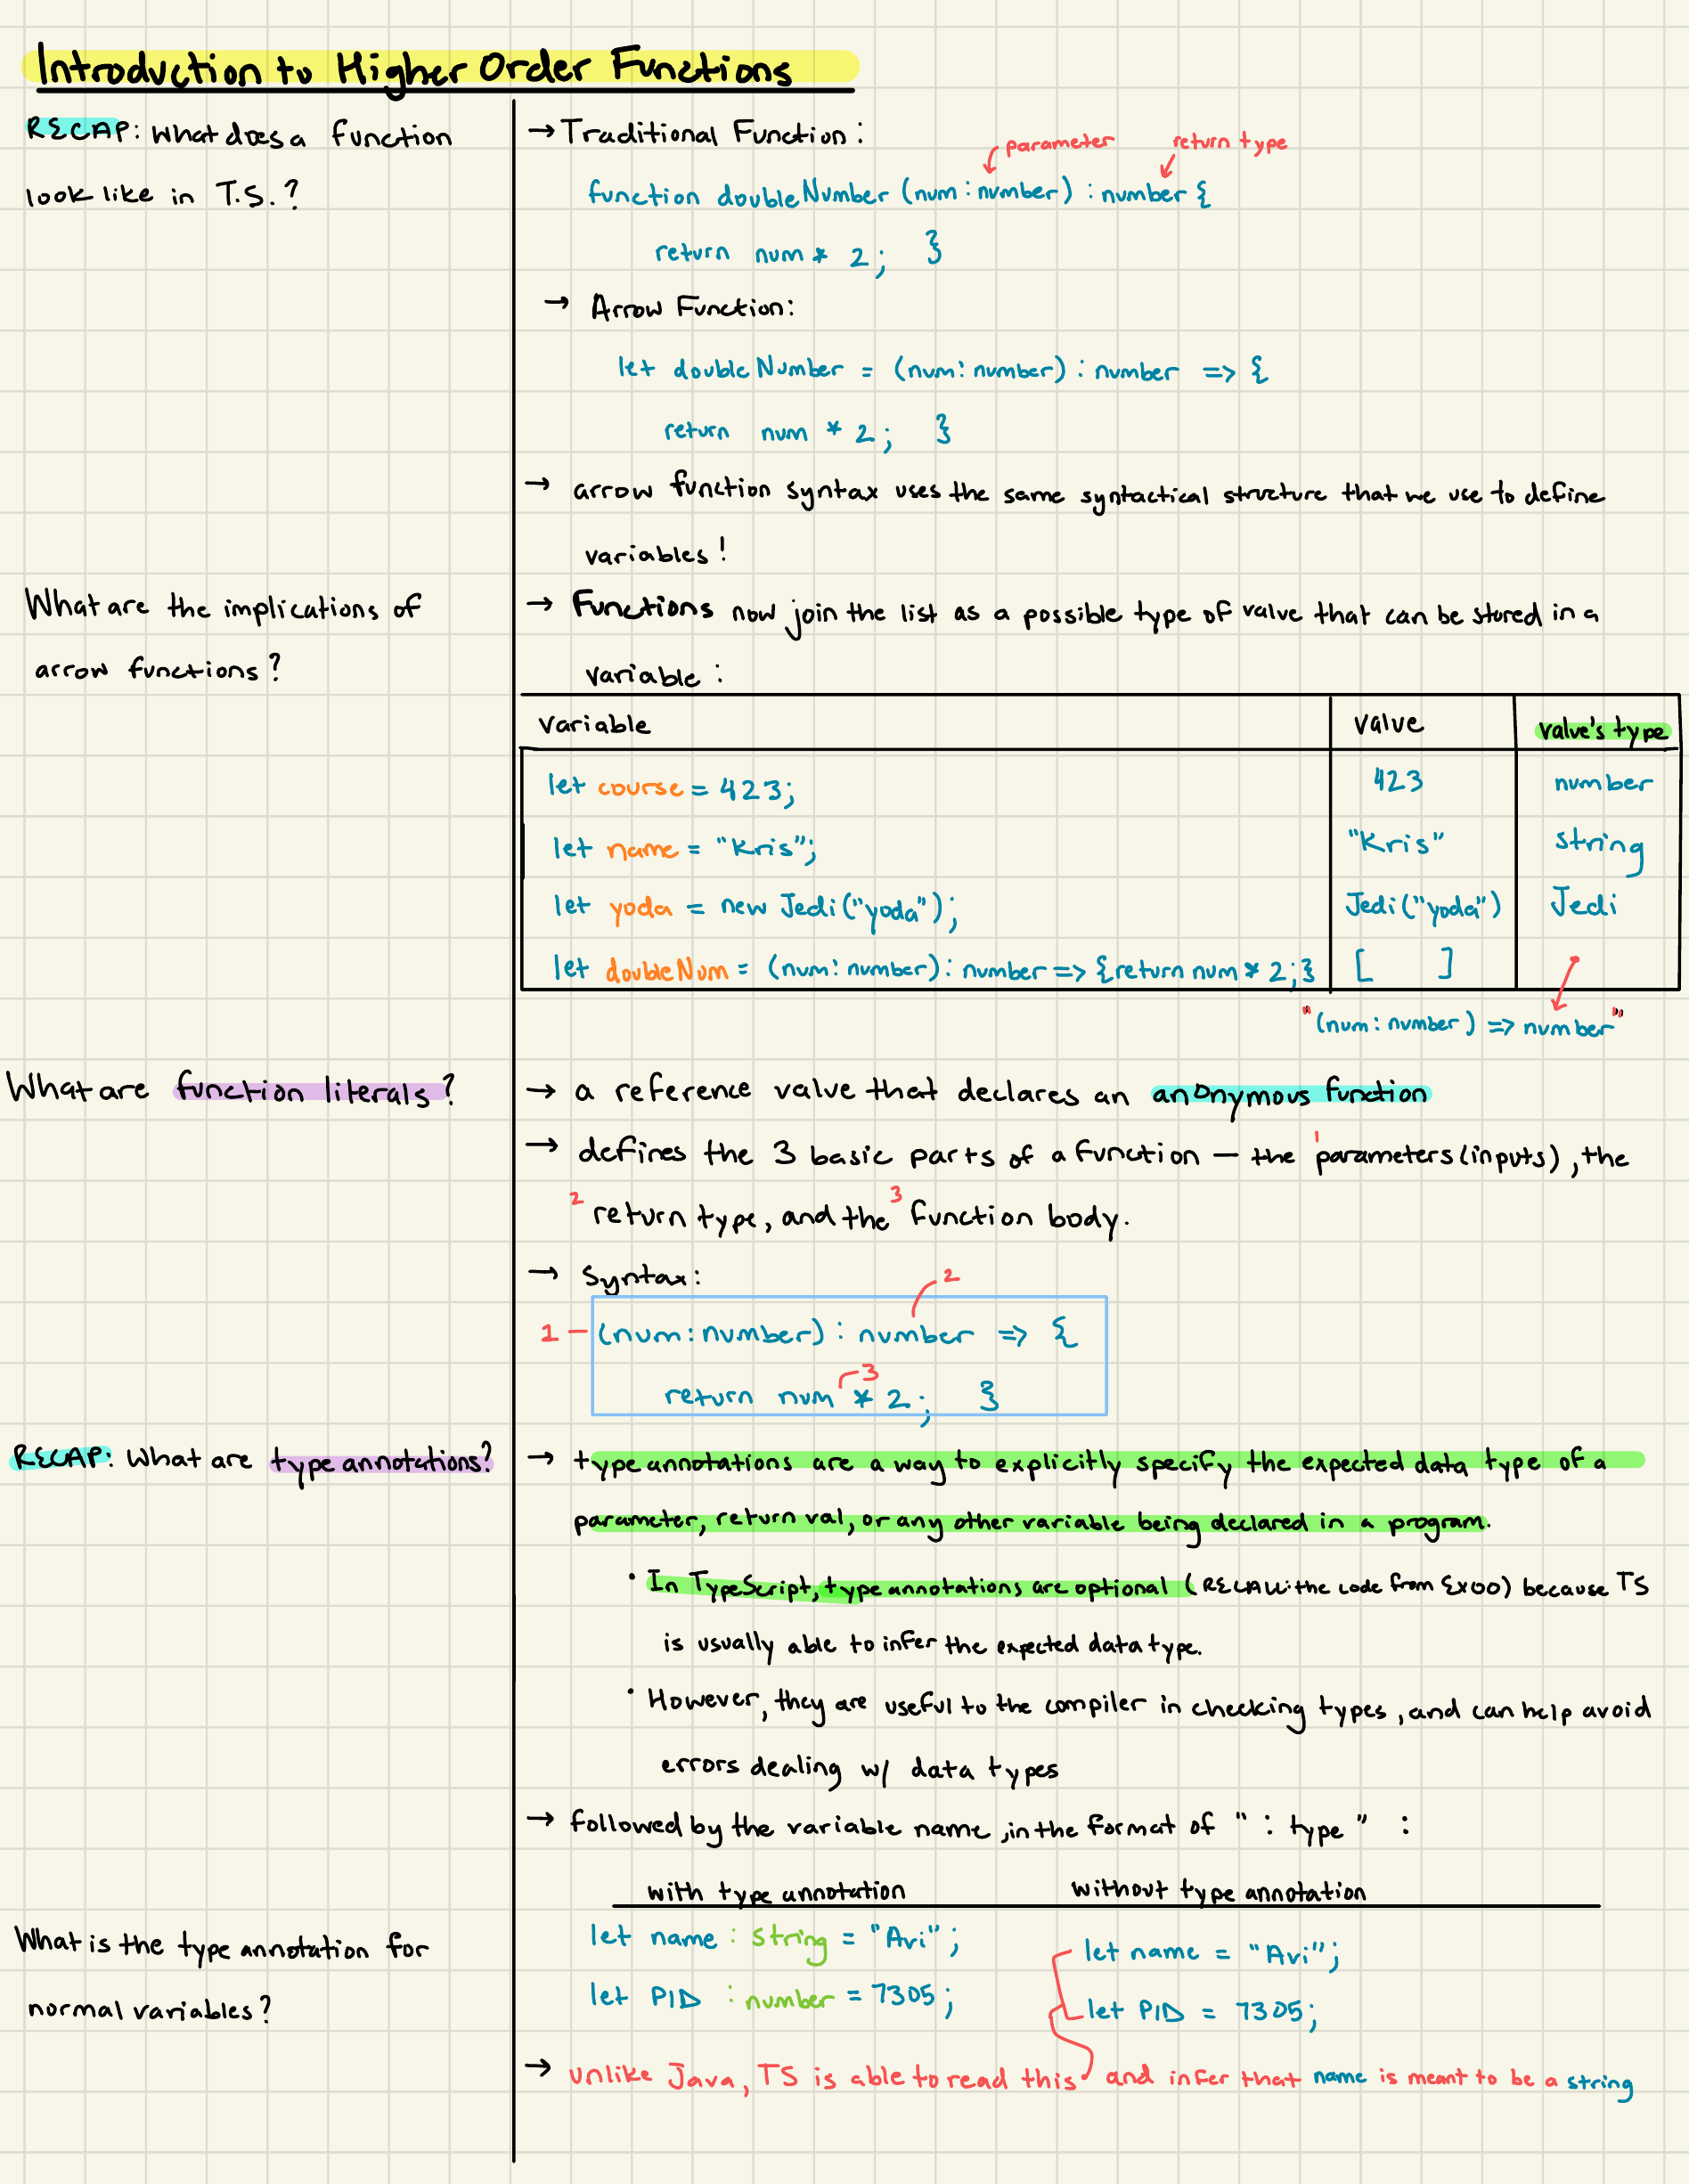 Introduction to Higher Order Functions
RECAP: What does a function
look like in T.S.?
→ Traditional Function:
parameter
return type
function doubleNumber (num: number) : number {
return num * 2; }
→ Arrow Function:
let doubleNumber = (num: number) : number => {
return num * 2; }
→ arrow function syntax uses the same syntactical structure that we use to define
variables!
What are the implications of
arrow functions?
→ Functions now join the list as a possible type of value that can be stored in a
variable:
Variable Value Value's type
let course = 423; 423 number
let name = "Kris"; "Kris" string
let yoda = new Jedi("yoda"); Jedi("yoda") Jedi
let doubleNum = (num: number) : number => {return num * 2;} [ ]
"(num: number) => number"
What are function literals?
→ a reference value that declares an anonymous function
→ defines the 3 basic parts of a function — the 1 parameters (inputs), the
2 return type, and the 3 function body.
→ Syntax:
2
1 – (num: number) : number => {
3
return num * 2; }
RECAP: What are type annotations?
→ type annotations are a way to explicitly specify the expected data type of a
parameter, return val, or any other variable being declared in a program.
• In TypeScript, type annotations are optional (RECALL: the code from EX00) because TS
is usually able to infer the expected data type.
• However, they are useful to the compiler in checking types, and can help avoid
errors dealing w/ data types
→ followed by the variable name, in the format of ": type" :
with type annotation without type annotation
What is the type annotation for
normal variables?
let name : string = "Avi";
let PID : number = 7305;
let name = "Avi";
let PID = 7305;
→ unlike Java, TS is able to read this and infer that name is meant to be a string